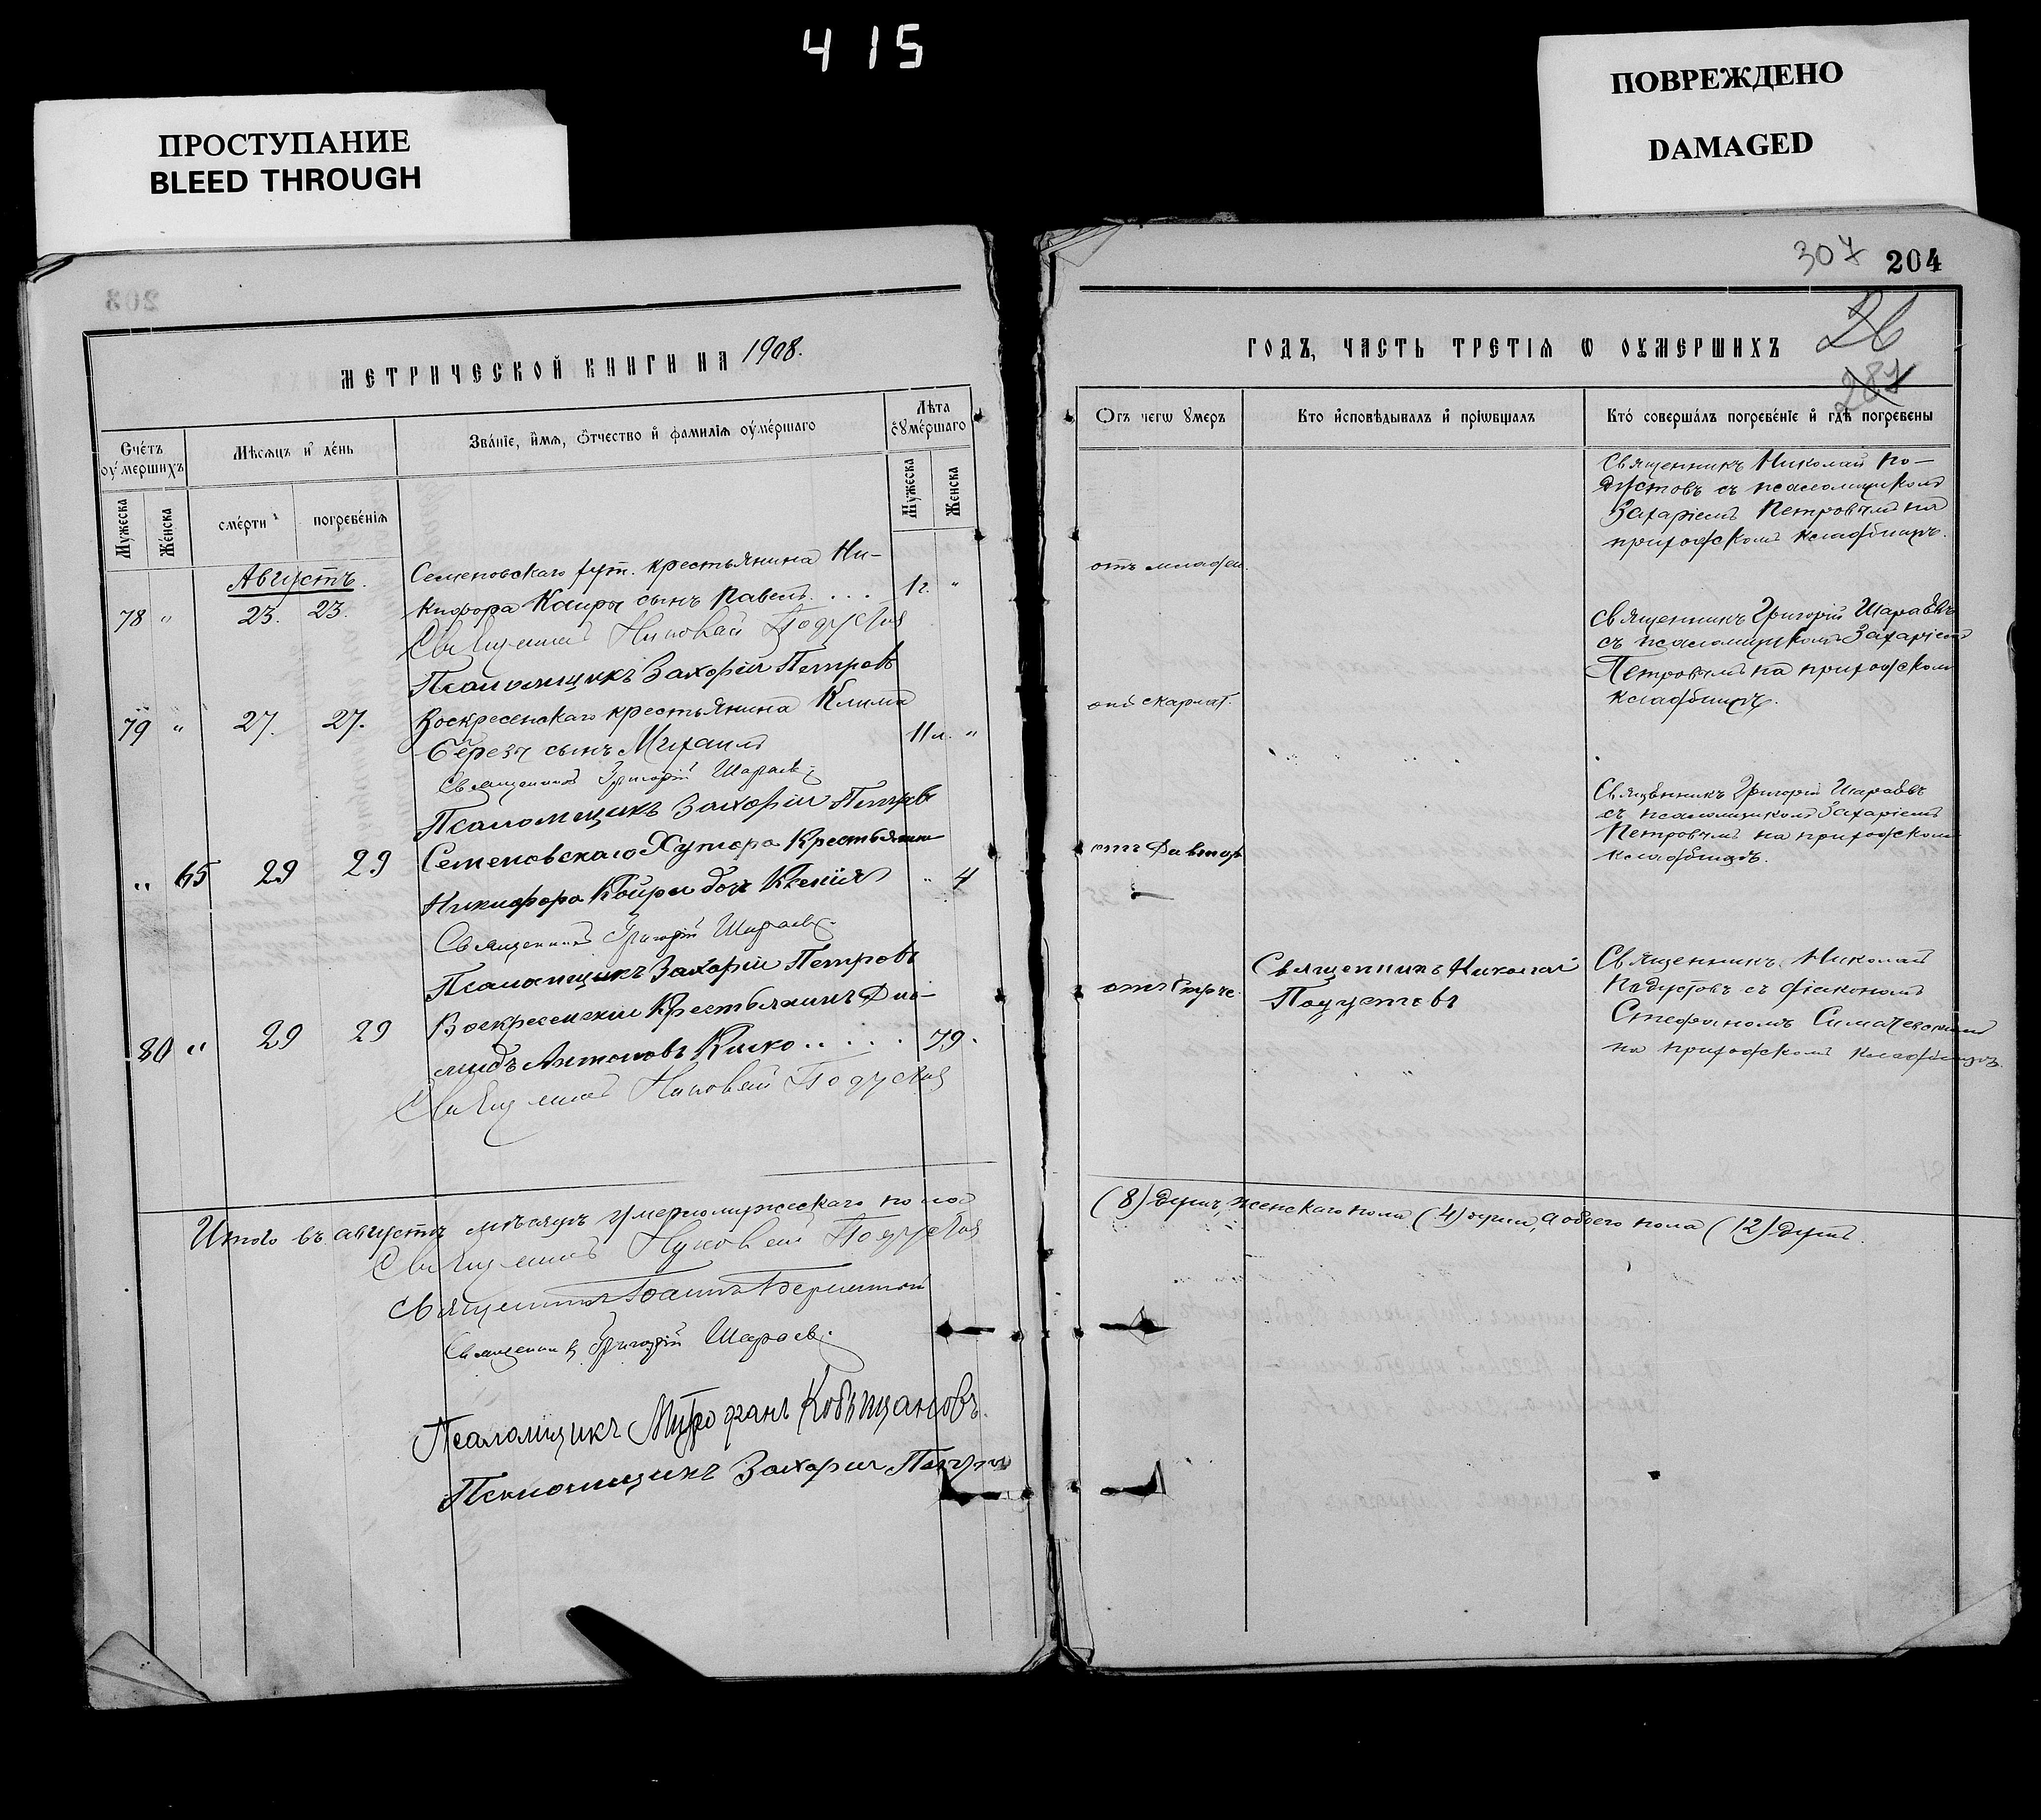 415
ПРОСТУПАНИЕ
BLEED THROUGH
ПОВРЕЖДЕНО
DAMAGED
307 204
203
26
287
МЕТРИЧЕСКОЙ КНИГИ НА 1908.
ГОДЪ, ЧАСТЬ ТРЕТІѦ Ѡ ОУМЕРШИХЪ
Счетъ оумершихъ
Мѣсѧцъ и день
Званіе, имѧ, Ѿчество и фамиліѧ оумершаго
Лѣта оумершаго
Мужеска
Женска
смерти
погребеніѧ
Мужеска
Женска
Отъ чегѡ умеръ
Кто исповѣдывалъ и пріѡбщалъ
Кто совершалъ погребеніе и гдѣ погребены
Августъ.
78 " 23. 23.
Семеновскаго хут. крестьянина Ни-
кифора Каиры сынъ Павелъ . . . 1г. "
Священникъ Николай Подустов
Псаломщикъ Захарій Петровъ
отъ младен.
Священникъ Николай По-
дустовъ съ псаломщикомъ
Захаріемъ Петровымъ на
приходскомъ кладбищѣ.
79 " 27. 27.
Воскресенскаго крестьянина Клима
Березы сынъ Михаилъ 11л. "
Священникъ Григорій Шараев
Псаломщикъ Захарій Петровъ
отъ скарлат.
Священникъ Григорій Шараевъ
съ псаломщикомъ Захаріемъ
Петровымъ на приходскомъ
кладбищѣ.
" 65 29 29
Семеновскаго Хутора Крестьянина
Никифора Каиры дочь Ксенія " 4
Священникъ Григорій Шараев
Псаломщикъ Захарій Петровъ
Священникъ Григорій Шараевъ
съ псаломщикомъ Захаріемъ
Петровымъ на приходскомъ
кладбищѣ.
80 " 29 29
Воскресенскій Крестьянинъ Діо-
мидъ Антоновъ Киско . . . . . 79.
Священникъ Николай Подустов
Священникъ Николай
Подустовъ
Священникъ Николай
Подустовъ съ діакономъ
Стефаномъ
на приходскомъ кладбищѣ.
Итого въ августѣ мѣсяцѣ умерло мужескаго пола
(8) душъ, женскаго пола (4) души, а обоего пола (12) душъ.
Священникъ Николай Подустов
Священникъ Іоаннъ
Священникъ Григорій Шараев
Псаломщикъ Митрофанъ Кобыщановъ.
Псаломщикъ Захарій Петров